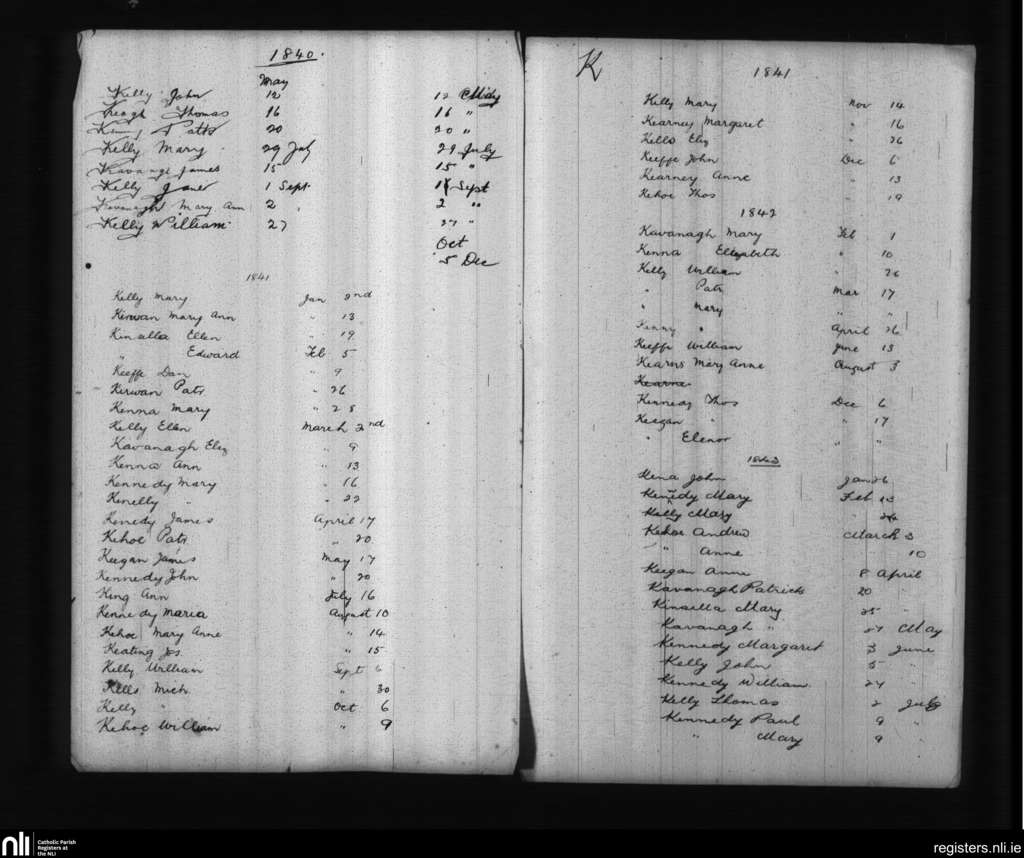 1840.
May
Kelly John 12 12 May
Keogh Thomas 16 16 "
Kenny Patk 20 20 "
Kelly Mary 29 July 29 July
Kavanagh James 15 15 "
Kelly 1 Sept. 1 Sept
Kavanagh Mary Ann 2 " 2 "
Kelly William 27 27 "
Oct
5 Dec
1841
Kelly Mary Jan 2nd
Kirwan Mary Ann " 13
Kinalla Ellen " 19
" Edward Feb 5
Keeffe Dan " 9
Kirwan Patk " 26
Kenna Mary " 28
Kelly Ellen March 2nd
Kavanagh Eliz " 9
Kenna Ann " 13
Kennedy Mary " 16
Kenelly " " 22
Kenedy James April 17
Kehoe Patk " 20
Keegan James May 17
Kennedy John " 20
King Ann July 16
Kennedy Maria August 10
Kehoe Mary Anne " 14
Keating Jos " 15
Kelly William Sept 6
Kells Mich " 30
Kelly " Oct 6
Kehoe William " 9
K
1841
Kelly Mary Nov 14
Kearney Margaret " 16
Kells Eliz " 26
Keeffe John Dec 6
Kearney Anne " 13
Kehoe Thos " 19
1842
Kavanagh Mary Feb 1
Kenna Elizabeth " 10
Kelly William " 26
" Patk Mar 17
" Mary " "
Kenny " April 26
Keeffe William June 13
Kearns Mary Anne August 3
Kearne
Kennedy Thos Dec 6
Keegan " " 17
" Elenor " "
1843
Kena John Jan 26
Kenedy Mary Feb 13
Kelly Mary " 24
Kehoe Andrew March 3
" Anne " 10
Keegan Anne 8 April
Kavanagh Patrick 20 "
Kinsella Mary 25 "
Kavanagh " 27 May
Kennedy Margaret 3 June
Kelly John 5 "
Kennedy William 24 "
Kelly Thomas 2 July
Kennedy Paul 9 "
" Mary 9
nli
Catholic Parish
Registers at
the NLI
registers.nli.ie